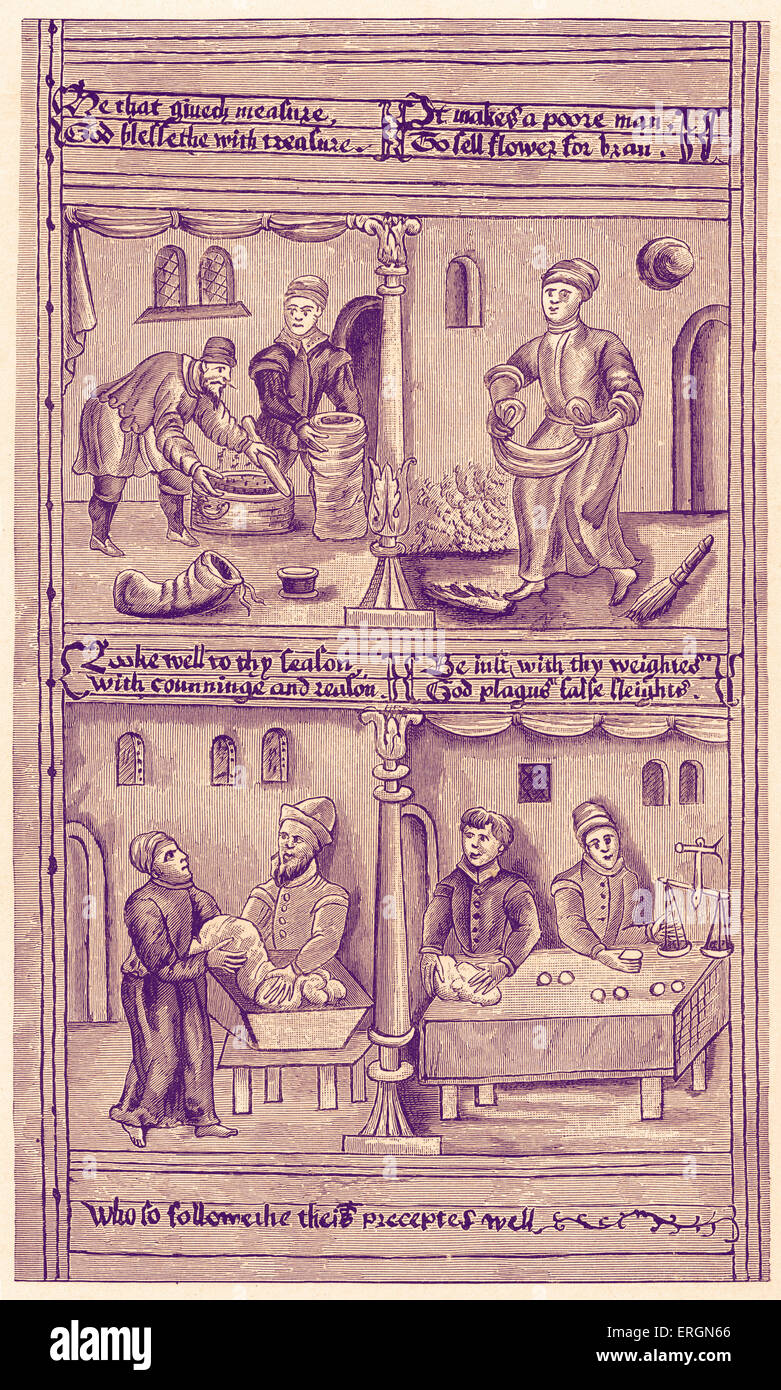 He that giueth measure,
God blessethe with treasure.
It makes a poore man
To sell flower for bran.
Looke well to thy season,
with counninge and reason.
Be iust, with thy weightes
God plagus false sleights.
Who so followethe theis preceptes well
alamy
Image ID: ERGN66
www.alamy.com